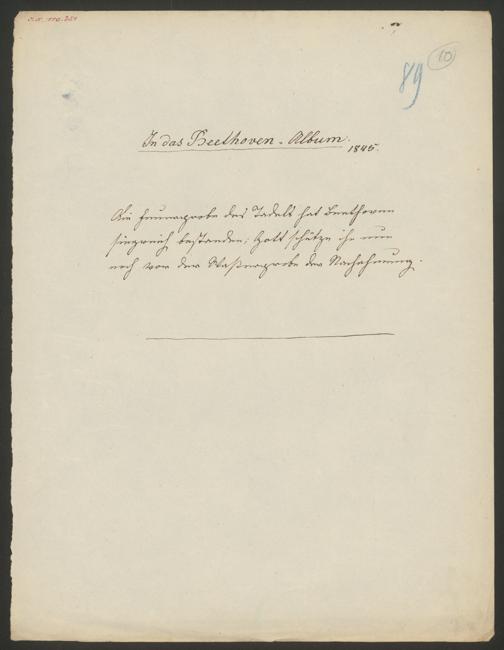 89
10
In das Beethoven-Album.
1845.
Die Feuerprobe des Tadels hat Beethoven
siegreich bestanden; Gott schütze ihn nun
noch vor der Waßerprobe der Nachahmung.